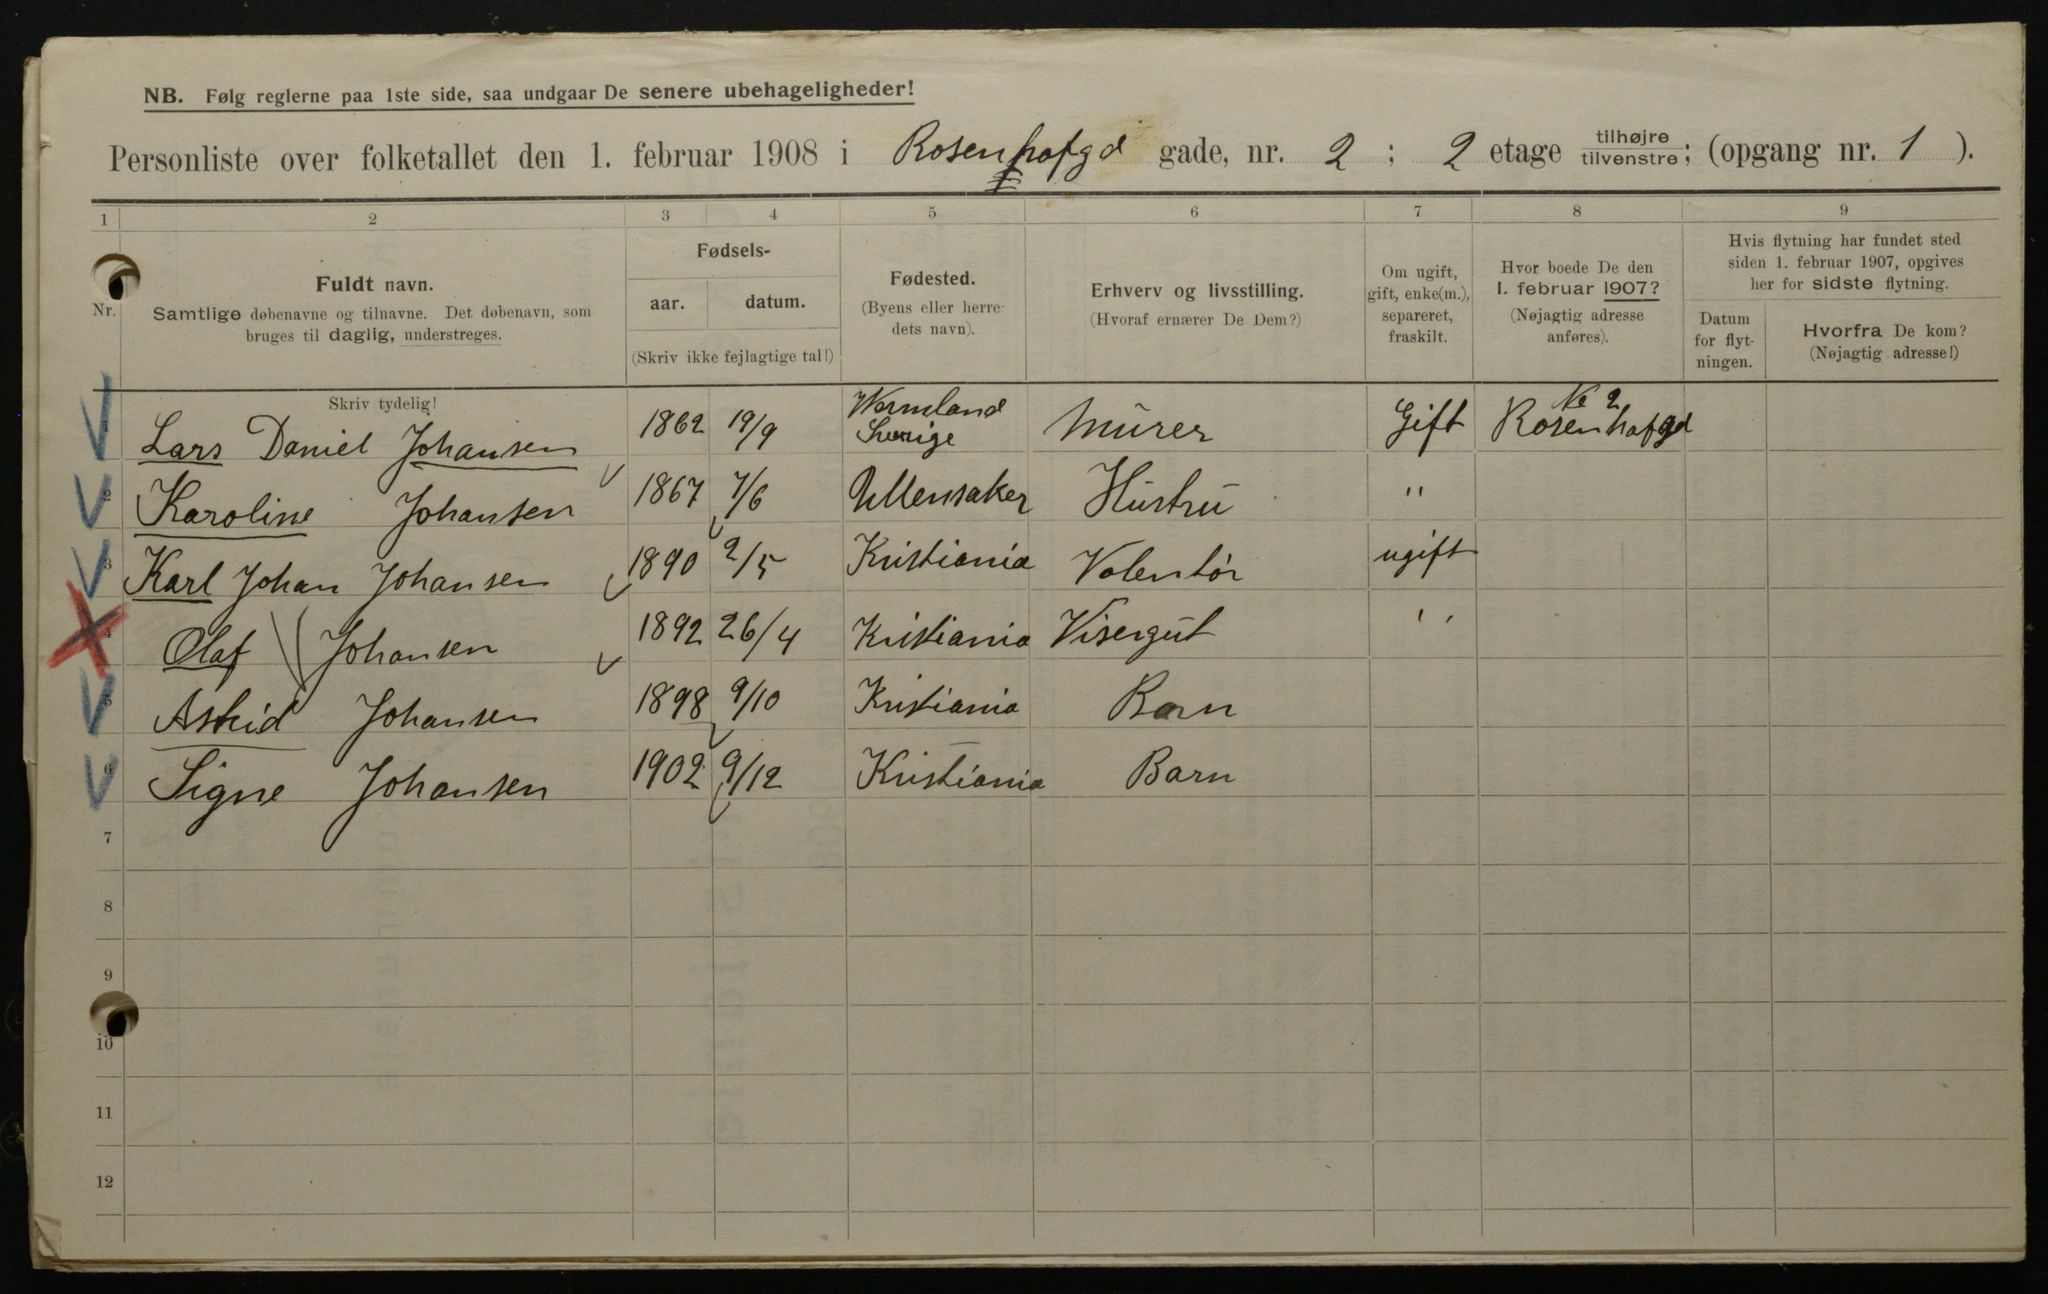 NB. Følg reglerne paa 1ste side, saa undgaar De senere ubehageligheder!
Personliste over folketallet den 1. februar 1908 i Rosenhofgd gade, nr. 2 ; 2 etage tilhøjre/tilvenstre; (opgang nr. 1 ).
1 2 3 4 5 6 7 8 9
Nr.
Fuldt navn.
Samtlige døbenavne og tilnavne. Det døbenavn, som
bruges til daglig, understreges.
Skriv tydelig!
Fødsels-
aar. datum.
(Skriv ikke fejlagtige tal!)
Fødested.
(Byens eller herre-
dets navn).
Erhverv og livsstilling.
(Hvoraf ernærer De Dem?)
Om ugift,
gift, enke(m.),
separeret,
fraskilt.
Hvor boede De den
1. februar 1907?
(Nøjagtig adresse
anføres).
Hvis flytning har fundet sted
siden 1. februar 1907, opgives
her for sidste flytning.
Datum
for flyt-
ningen.
Hvorfra De kom?
(Nøjagtig adresse!)
1 Lars Daniel Johansen 1862 19/9 Wermland Sverige Murer Gift No 2 Rosenhofgd
2 Karoline Johansen 1867 7/6 Ullensaker Hustru "
3 Karl Johan Johansen 1890 2/5 Kristiania Volentør ugift
4 Olaf Johansen 1892 26/4 Kristiania Visergut "
5 Astrid Johansen 1898 9/10 Kristiania Barn
6 Signe Johansen 1902 9/12 Kristiania Barn
7
8
9
10
11
12